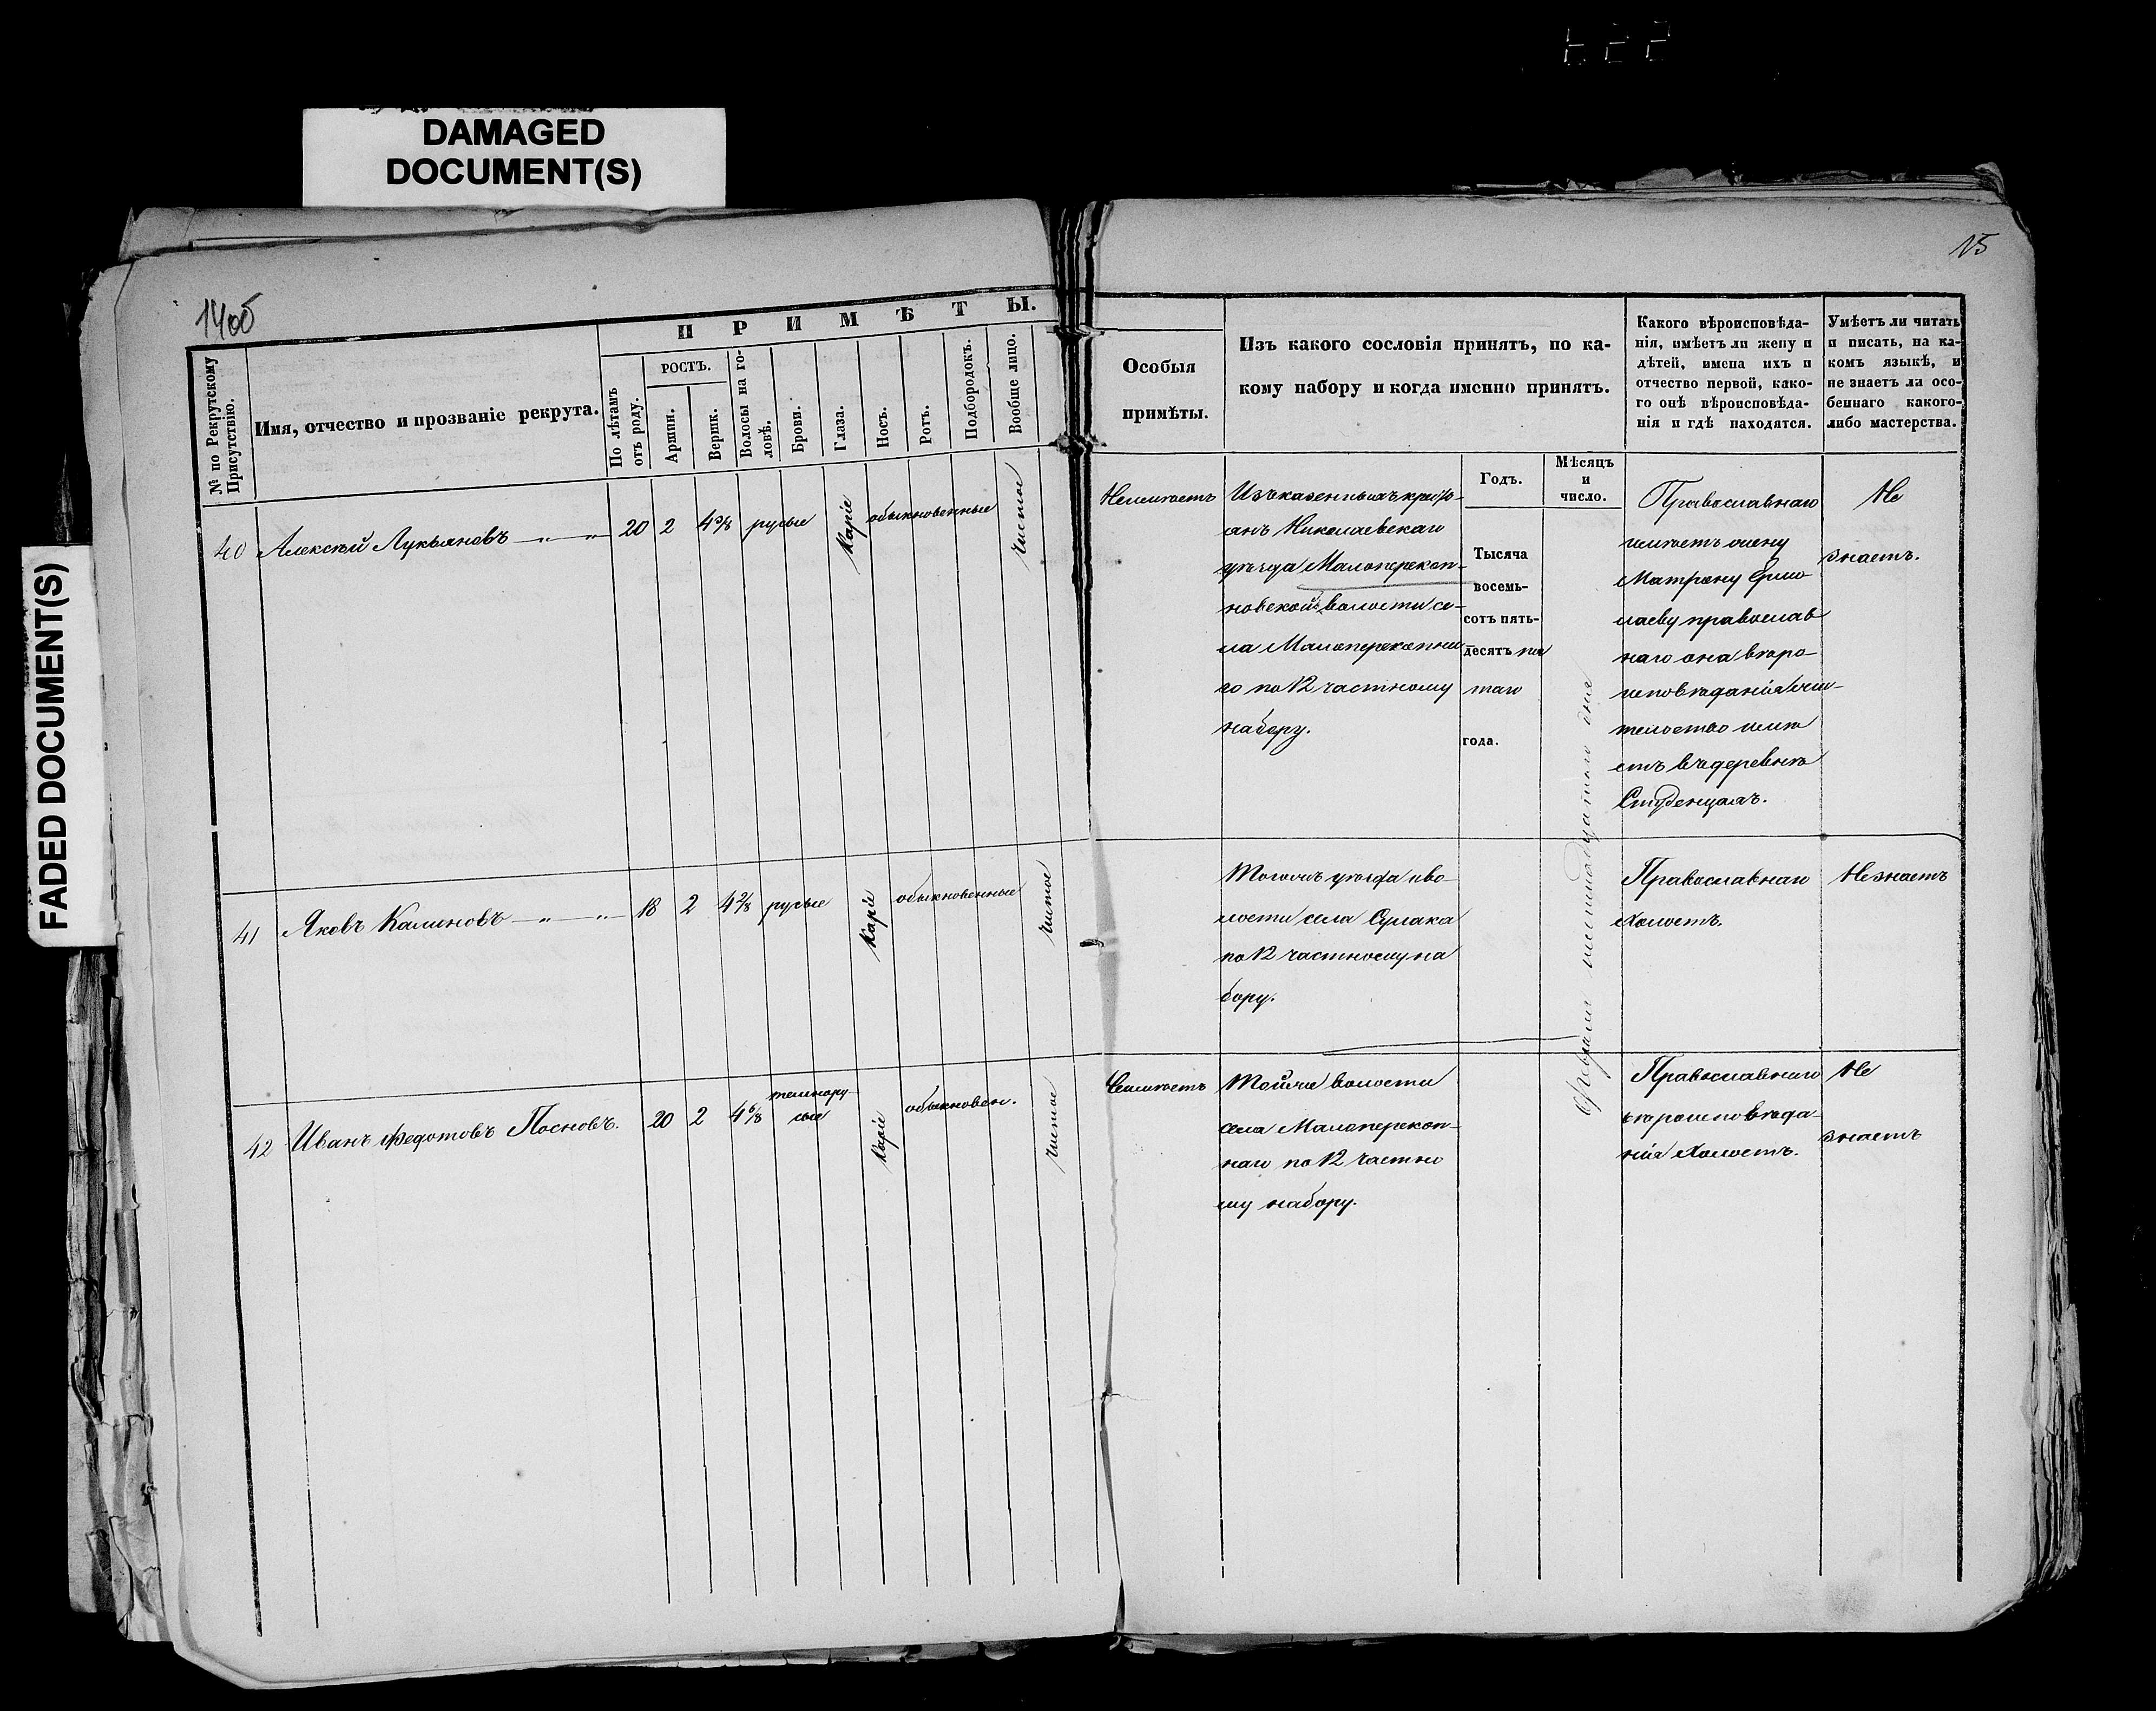 DAMAGED
DOCUMENT(S)
FADED DOCUMENT(S)
15
14об
№ по Рекрутскому
Присутствію.
Имя, отчество и прозваніе рекрута.
ПРИМѢТЫ.
По лѣтамъ
отъ роду.
РОСТЪ.
Аршин.
Вершк.
Волосы на го-
ловѣ.
Брови.
Глаза.
Носъ.
Ротъ.
Подбородокъ.
Вообще лицо.
Особыя
примѣты.
Изъ какого сословія принятъ, по ка-
кому набору и когда именно принятъ.
Какого вѣроисповѣда-
нія, имѣетъ ли жену и
дѣтей, имена ихъ и
отчество первой, како-
го онѣ вѣроисповѣда-
нія и гдѣ находятся.
Умѣетъ ли читать
и писать, на ка-
комъ языкѣ, и
не знаетъ ли осо-
беннаго какого-
либо мастерства.
Годъ.
Мѣсяцъ
и
число.
40 Алексѣй Лукьяновъ — „ — „ 20 2 4 3/8 русые Каріе обыкновенные Чистое
Неимѣетъ
Изъ казенныхъ кресть-
янъ Николаевскаго
уѣзда Малоперекоп-
новской волости се-
ла Малоперекопна
го по 12 частному
набору.
Тысяча
восемь-
сотъ пять-
десять пя
таго
года.
Февраля шестнадцатаго дня
Православнаго
имѣетъ жену
Матрену Ермо
лаеву православ
наго она вѣро
исповѣданія жи-
тельство имѣ
етъ въ деревнѣ
Студенцахъ.
Не
знаетъ.
41 Яковъ Калиновъ — „ — „ 18 2 4 2/8 русые Каріе обыкновенные Чистое
Тогожъ уѣзда и во-
лости села Сулака
по 12 частному на
бору.
Православнаго
Холостъ.
Незнаетъ
42 Иванъ Федотовъ Посновъ. 20 2 4 6/8 темнору
сые Каріе обыкновен. Чистое
Неимѣетъ
Тойже волости
села Малоперекоп-
наго по 12 частно
му набору.
Православнаго
вѣроисповѣда-
нія Холостъ.
Не
знаетъ